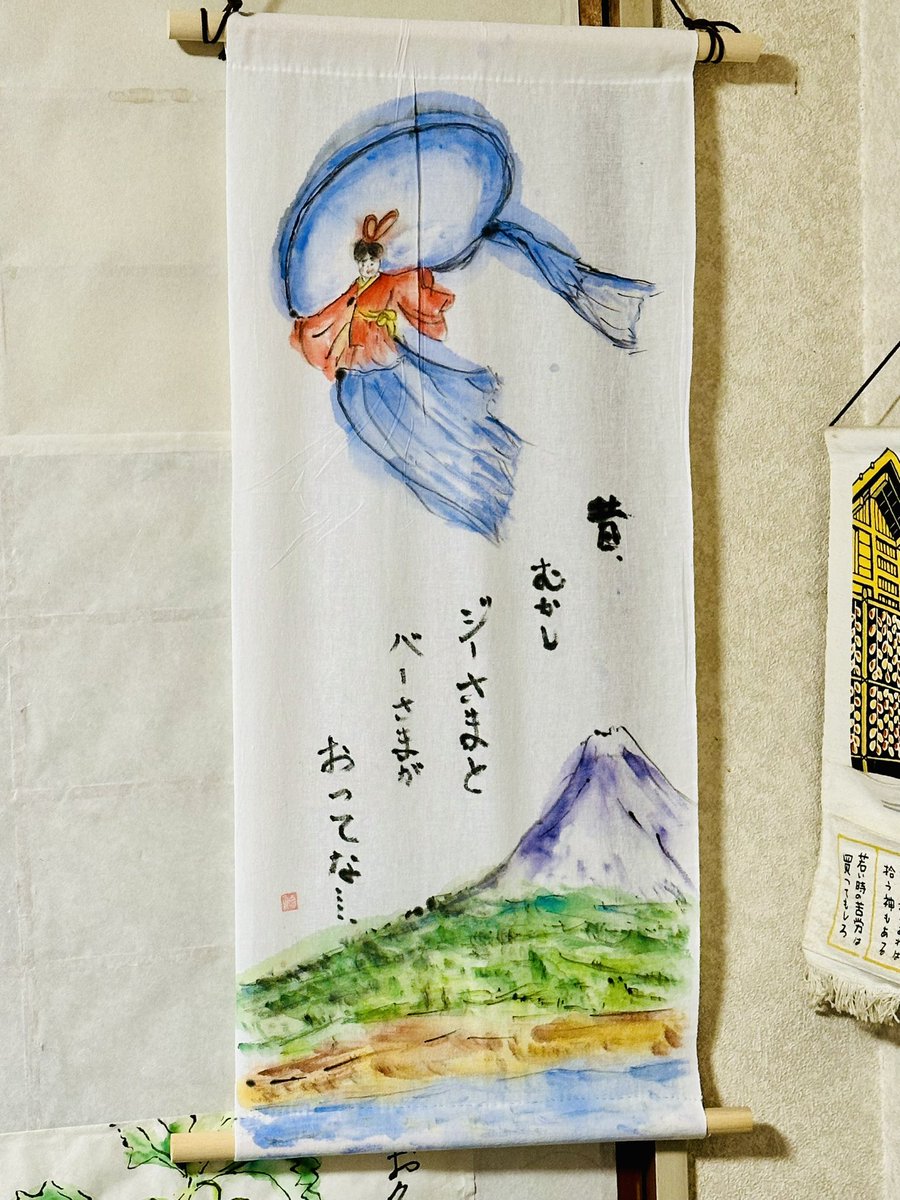 昔、
むかし
ジーさまと
バーさまが
おってな……
拾う神もある
若い時の苦労は
買ってもしろ